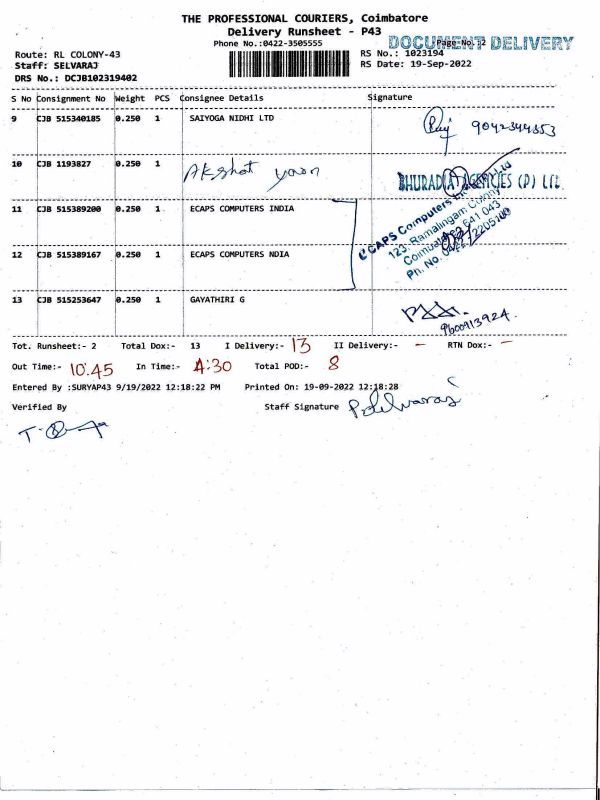 THE PROFESSIONAL COURIERS, Coimbatore
Delivery Runsheet - P43
Phone No.:0422-3505555
DOCUMENT DELIVERY
Page No.:2
Route: RL COLONY-43
RS No.: 1023194
Staff: SELVARAJ
RS Date: 19-Sep-2022
DRS No.: DCJB102319402
S No Consignment No Weight PCS Consignee Details Signature
9 CJB 515340185 0.250 1 SAIYOGA NIDHI LTD
10 CJB 1193827 0.250 1 Akshat yarn
BHURAD(A) AGENCIES (P) LTD.
11 CJB 515389200 0.250 1 ECAPS COMPUTERS INDIA
ECAPS Computers Ltd
123, Ramalingam Colony
Coimbatore 641 043
Ph. No. 0422
12 CJB 515389167 0.250 1 ECAPS COMPUTERS NDIA
13 CJB 515253647 0.250 1 GAYATHIRI G
9600913924.
Tot. Runsheet:- 2 Total Dox:- 13 I Delivery:- 13 II Delivery:- - RTN Dox:- -
Out Time:- 10:45 In Time:- 4:30 Total POD:- 8
Entered By :SURYAP43 9/19/2022 12:18:22 PM Printed On: 19-09-2022 12:18:28
Verified By Staff Signature P. Selvaraj